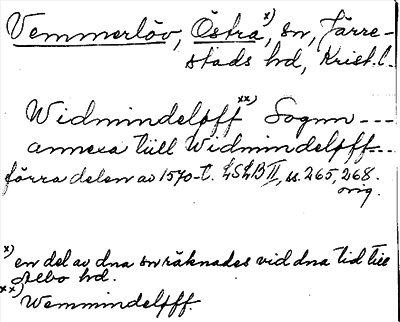 Vemmerlöv, Östra x), sn, Järre-
stads hd, Krist. l.
Widmindelöff xx) Sognn ---
annexa till Widmindelöff---
förra delen av 1570-t. LSLB II, ss. 265, 268.
orig.
x) en del av dna sn räknades vid dna tid till
hd.
xx) Wemmindelöff.